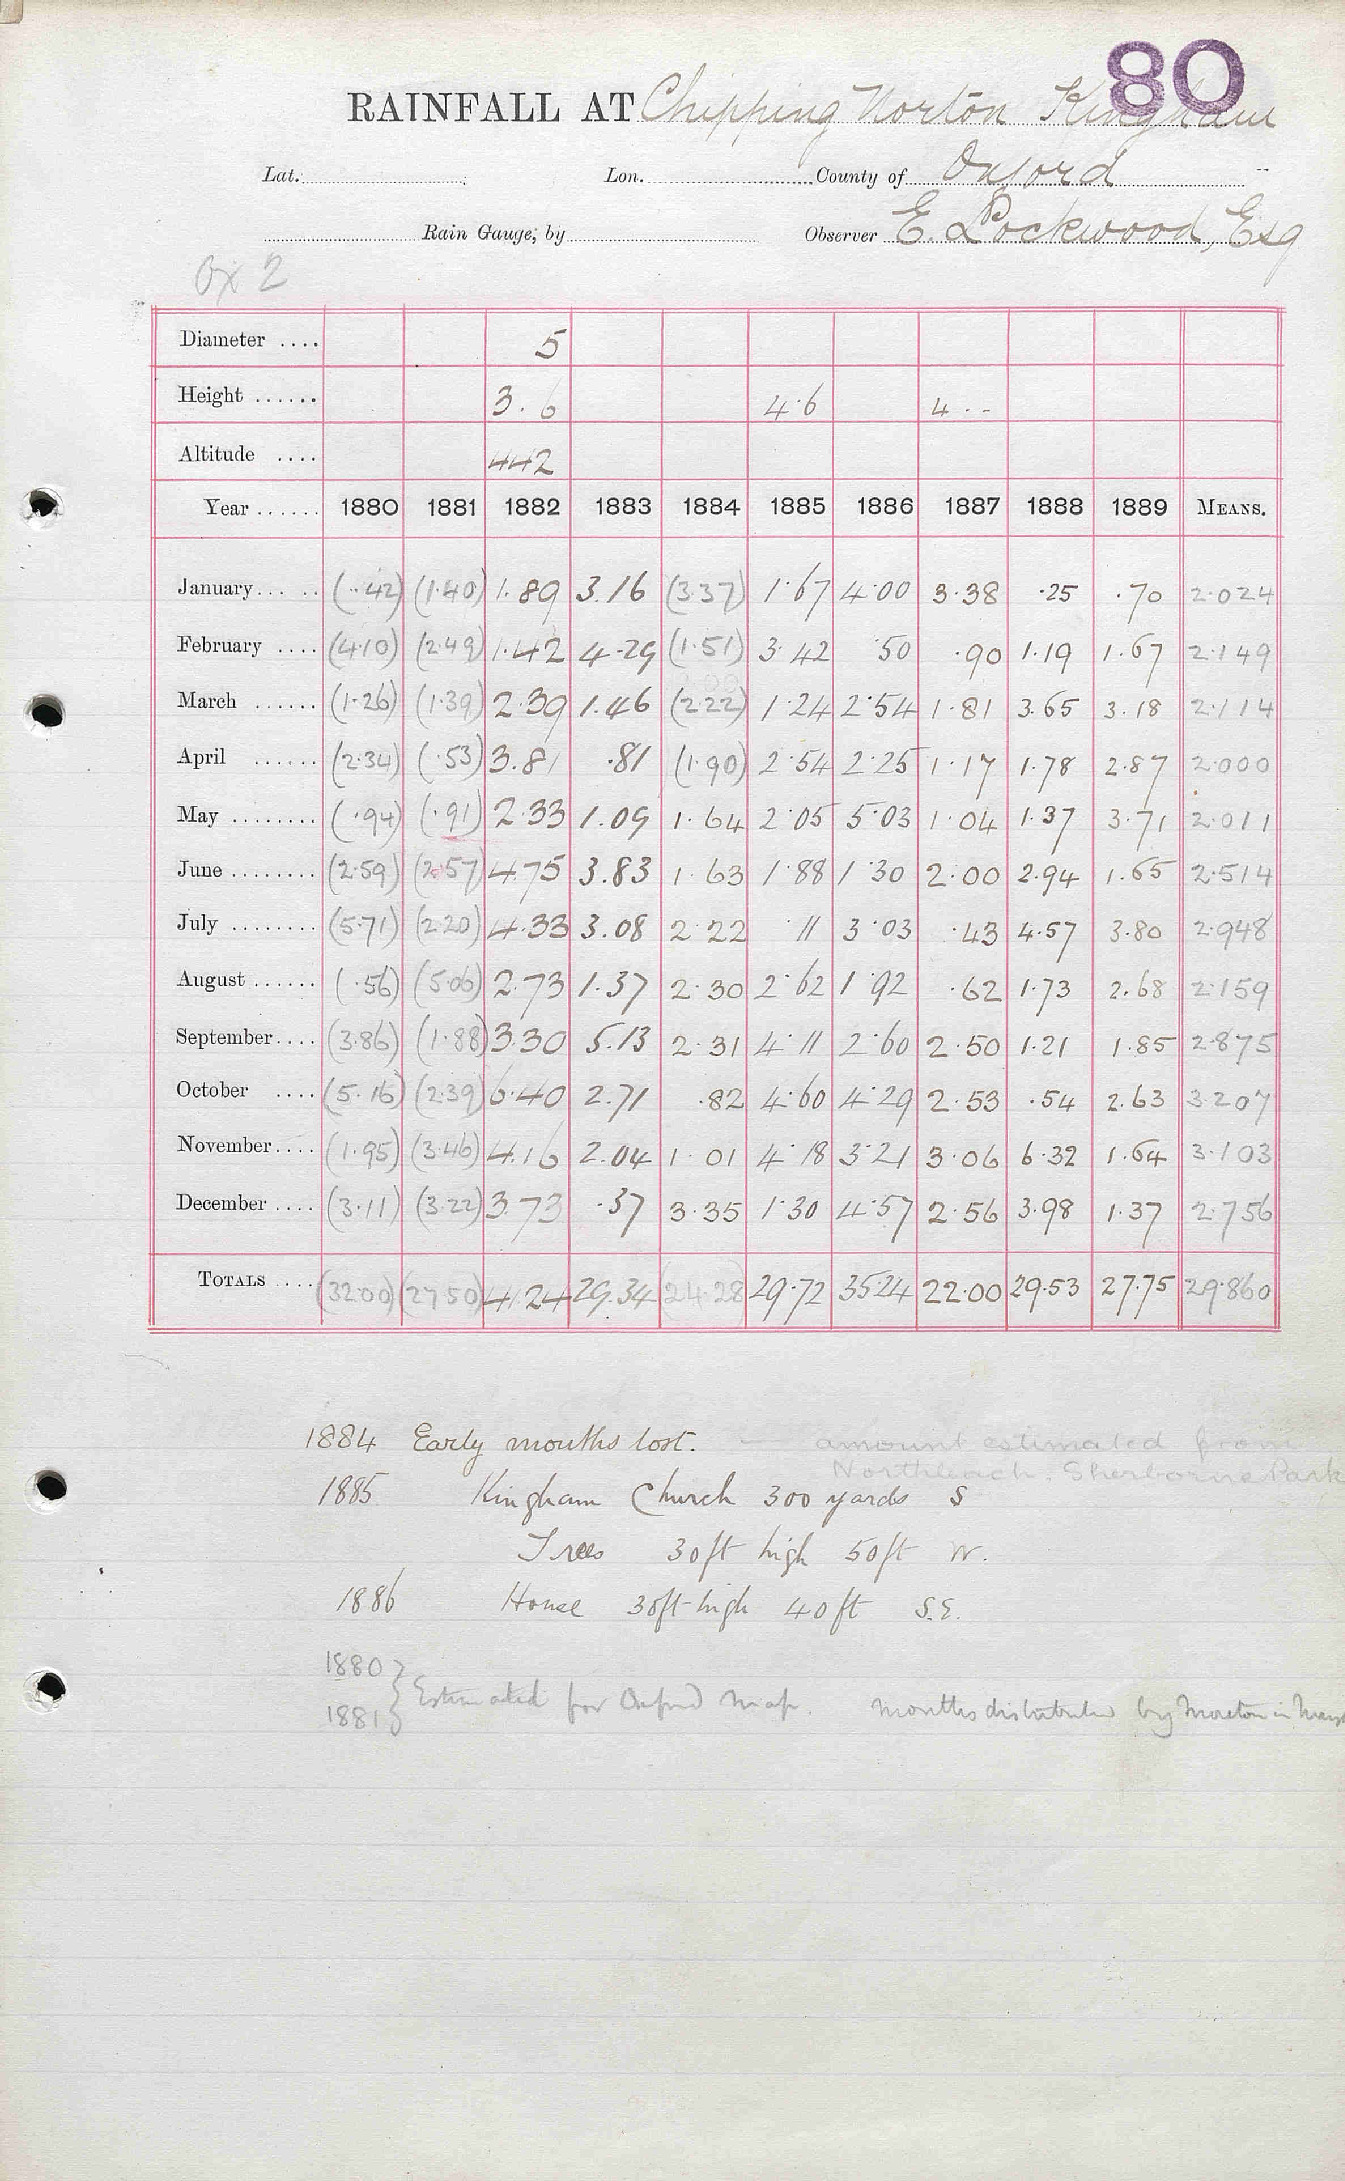 80
RAINFALL AT Chipping Norton Kingham
Lat. Lon. County of Oxford
Rain Gauge, by Observer E. Lockwood, Esq
Ox 2
Diameter .... 5
Height ...... 3.6 4.6 4 . --
Altitude .... 442
Year ...... 1880 1881 1882 1883 1884 1885 1886 1887 1888 1889 MEANS.
January... ... (.42) (1.40) 1.89 3.16 (3.37) 1.67 4.00 3.38 .25 .70 2.024
February .... (4.10) (2.49) 1.42 4.29 (1.51) 3.42 .50 .90 1.19 1.67 2.149
March ...... (1.26) (1.39) 2.39 1.46 (2.22) 1.24 2.54 1.81 3.65 3.18 2.114
April ...... (2.34) (.53) 3.81 .81 (1.90) 2.54 2.25 1.17 1.78 2.87 2.000
May ........ (.94) (.91) 2.33 1.09 1.64 2.05 5.03 1.04 1.37 3.71 2.011
June ........ (2.59) (2.57) 4.75 3.83 1.63 1.88 1.30 2.00 2.94 1.65 2.514
July ........ (5.71) (2.20) 4.33 3.08 2.22 .11 3.03 .43 4.57 3.80 2.948
August ...... (.56) (5.06) 2.73 1.37 2.30 2.62 1.92 .62 1.73 2.68 2.159
September.... (3.86) (1.88) 3.30 5.13 2.31 4.11 2.60 2.50 1.21 1.85 2.875
October .... (5.16) (2.39) 6.40 2.71 .82 4.60 4.29 2.53 .54 2.63 3.207
November.... (1.95) (3.46) 4.16 2.04 1.01 4.18 3.21 3.06 6.32 1.64 3.103
December .... (3.11) (3.22) 3.73 .37 3.35 1.30 4.57 2.56 3.98 1.37 2.756
TOTALS .... (32.00) (27.50) 41.24 29.34 (24.28) 29.72 35.24 22.00 29.53 27.75 29.860
1884 Early months lost. — amount estimated from
Northleach, Sherborne Park
1885 Kingham Church 300 yards S
Trees 30ft high 50ft W.
1886 House 30ft high 40ft S.E.
1880
1881 } Estimated for Oxford Map. months distributed by Moreton in Marsh